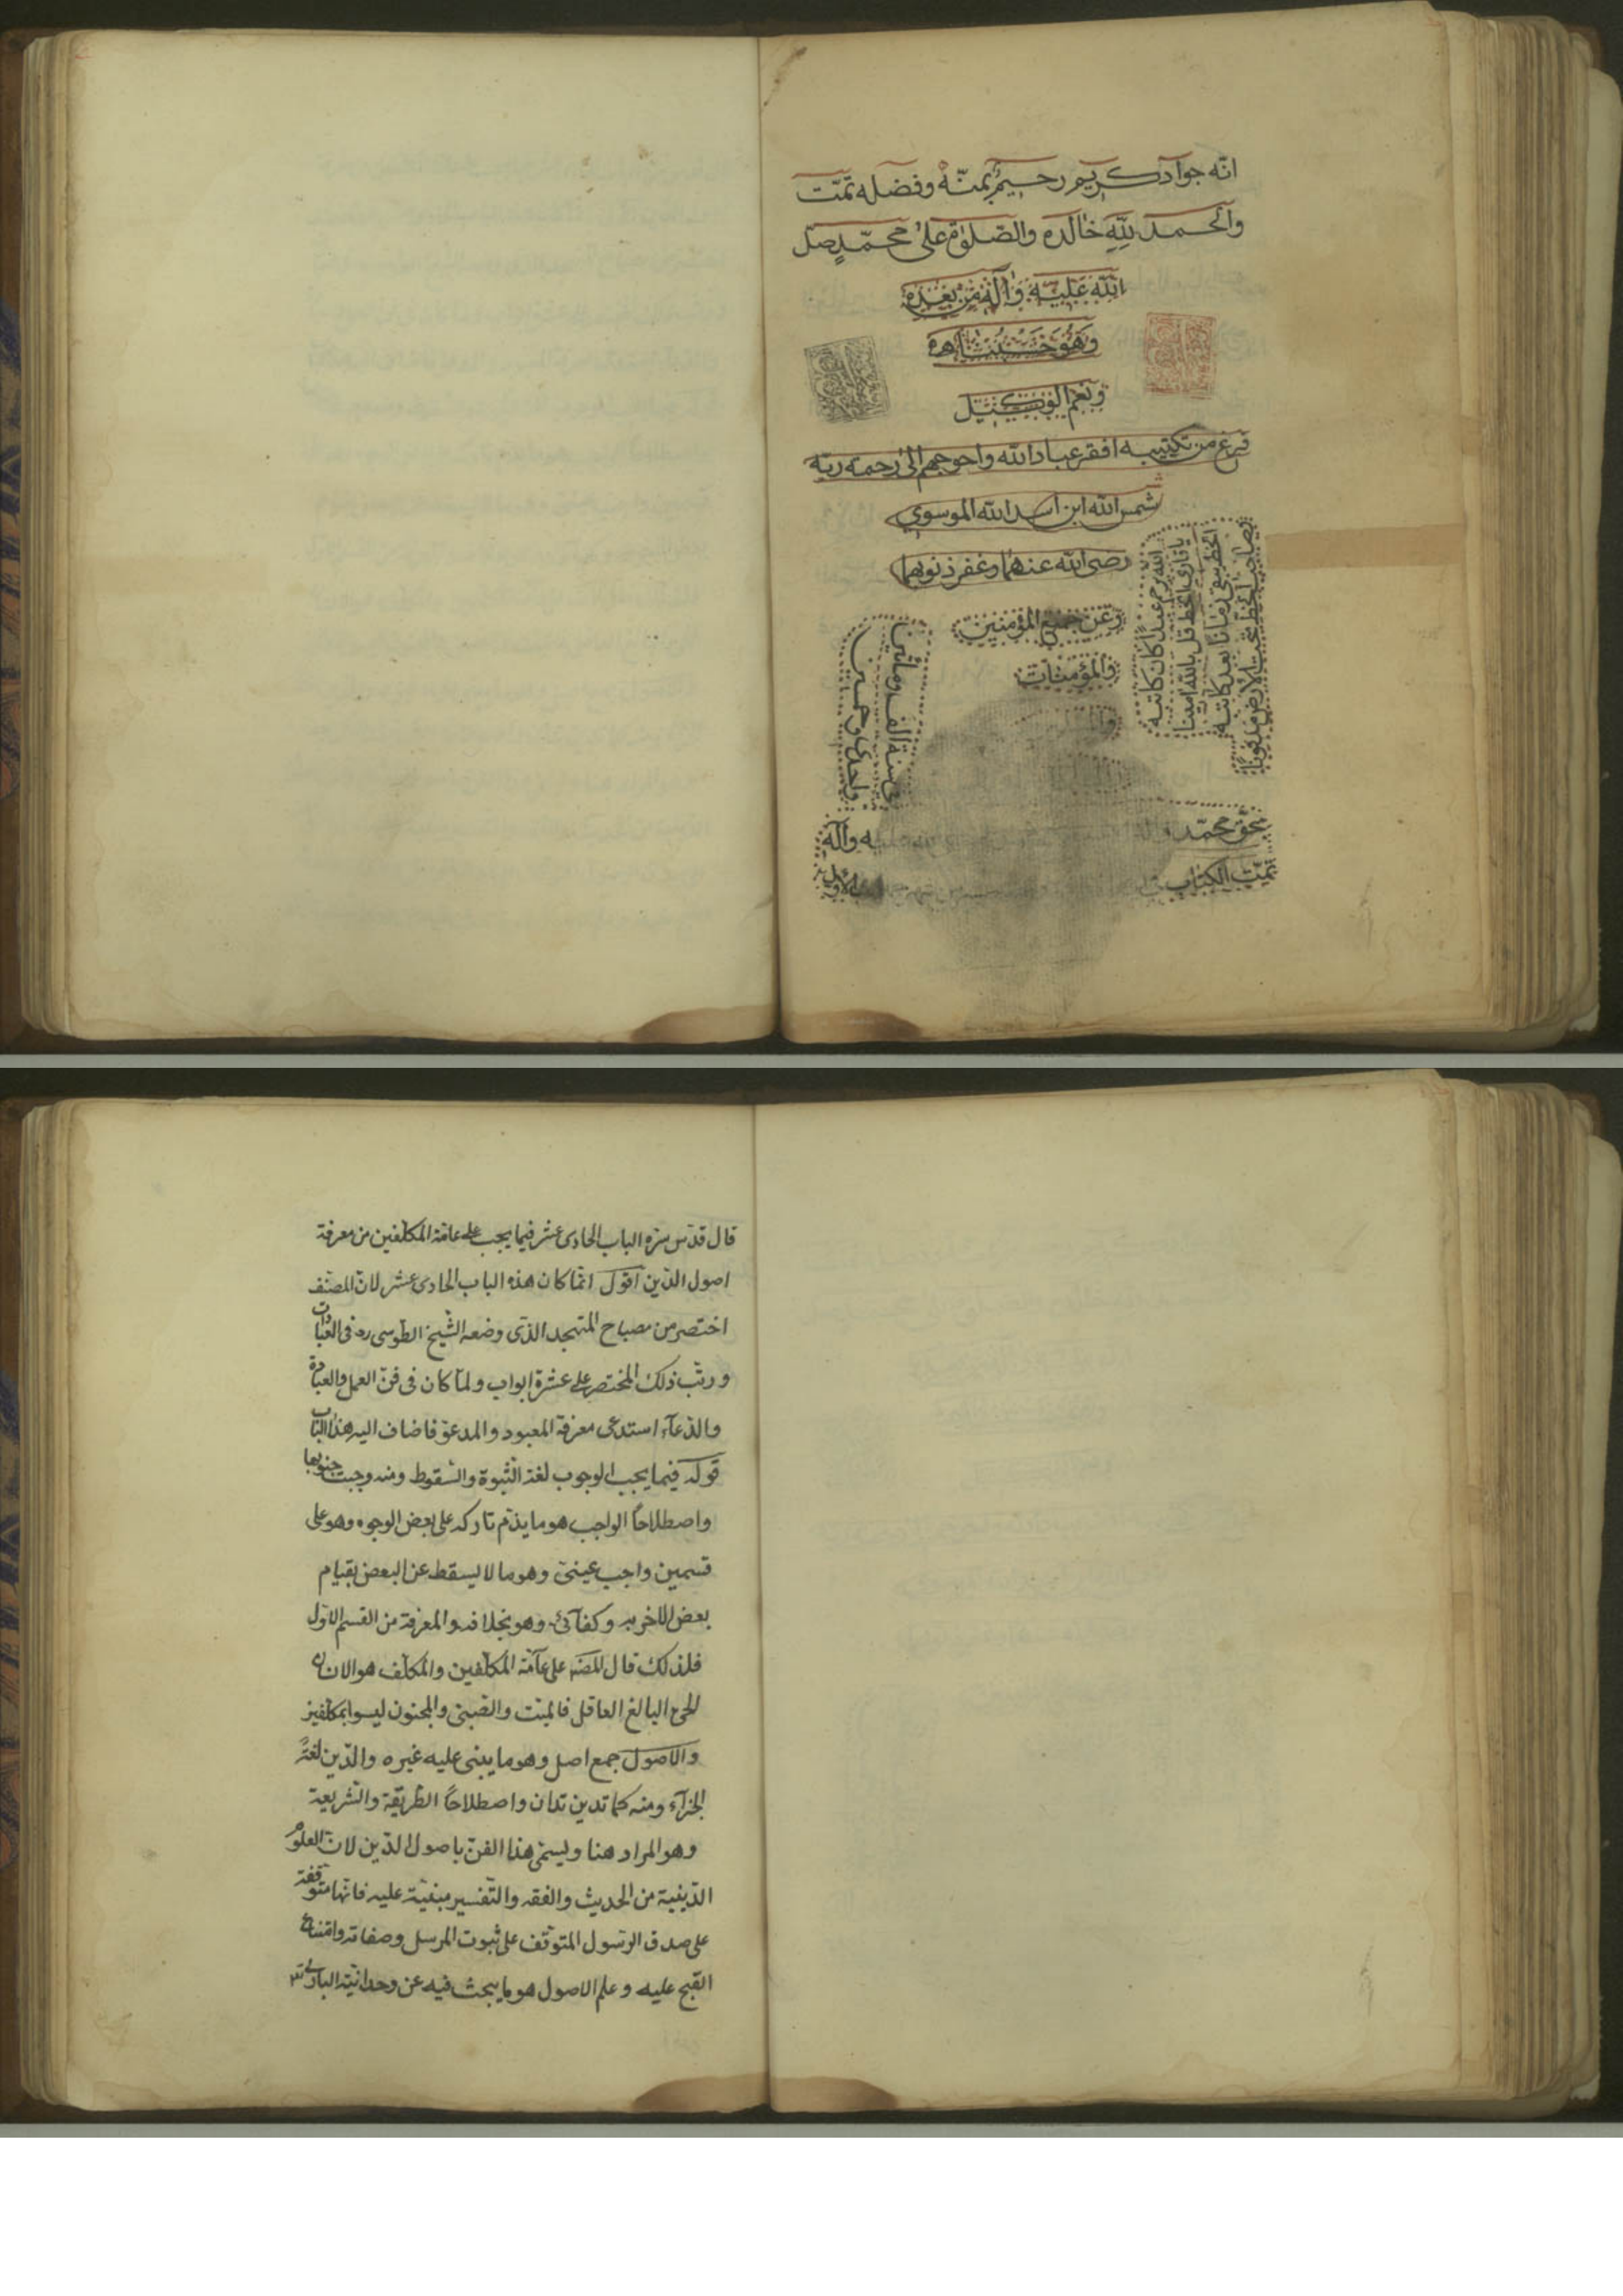 انّه جوادكريم رحيم بمنّه وفضله تمّت
والحمد للّه خالده والصّلوة على محمّدٍ صلّ
اللّه عليه وآله من بعده
وهو حسبنا
ونعم الوكيل
فرغ من تكتيبه افقر عباد الله واحوجهم الى رحمة ربّه
شمس الله ابن اسد الله الموسوي
رضى الله عنهما وغفر ذنوبهما
وعن جميع المؤمنين
والمؤمنات
الله يرحم عبدًا كان كاتبه
يا قارئ الخط قل بالله امينا
الخط يبقى زمانًا بعد كاتبه
وصاحب الخط تحت الارض مدفونًا
فى سنة الف ومأتين
واحدى وخمسين
بحق محمّد وآله
تمّت الكتاب
قال قدّس سرّه الباب الحادى عشر فيما يجب على عامّة المكلّفين من معرفة
اصول الدّين اقول انّما كان هذه الباب الحادى عشر لانّ المصنّف
اختصر من مصباح المتهجد الذّى وضعه الشّيخ الطّوسى ره فى العبادات
ورتّب ذلك المختصر على عشرة ابواب ولمّا كان فى فنّ العمل والعبادة
والدّعآء استدعى معرفة المعبود والمدعوّ فاضاف اليه هذا الباب
قوله فيما يجب الوجوب لغة الثّبوة والسّقوط ومنه وجبت جنوبها
واصطلاحًا الواجب هو ما يذمّ تاركه على بعض الوجوه وهو على
قسمين واجب عينىّ وهو ما لا يسقط عن البعض بقيام
بعض الاخر به وكفآئى وهو بخلافه والمعرفة من القسم الاوّل
فلذلك قال المصّ على عآمّة المكلّفين والمكلّف هو الانسان
الحىّ البالغ العاقل فالميّت والصّبىّ والمجنون ليسوا بمكلّفين
والاصول جمع اصل وهو ما يبنى عليه غيره والدّين لغةً
الجزآء ومنه كما تدين تدان واصطلاحًا الطّريقة والشّريعة
وهو المراد هنا ويسمّى هذا الفنّ باصول الدّين لانّ العلوم
الدّينية من الحديث والفقه والتّفسير مبنيّة عليه فانّها متوقّفة
على صدق الرّسول المتوقّف على ثبوت المرسل وصفاته وامتناع
القبح عليه وعلم الاصول هو ما يبحث فيه عن وحدانيّة البارى تع